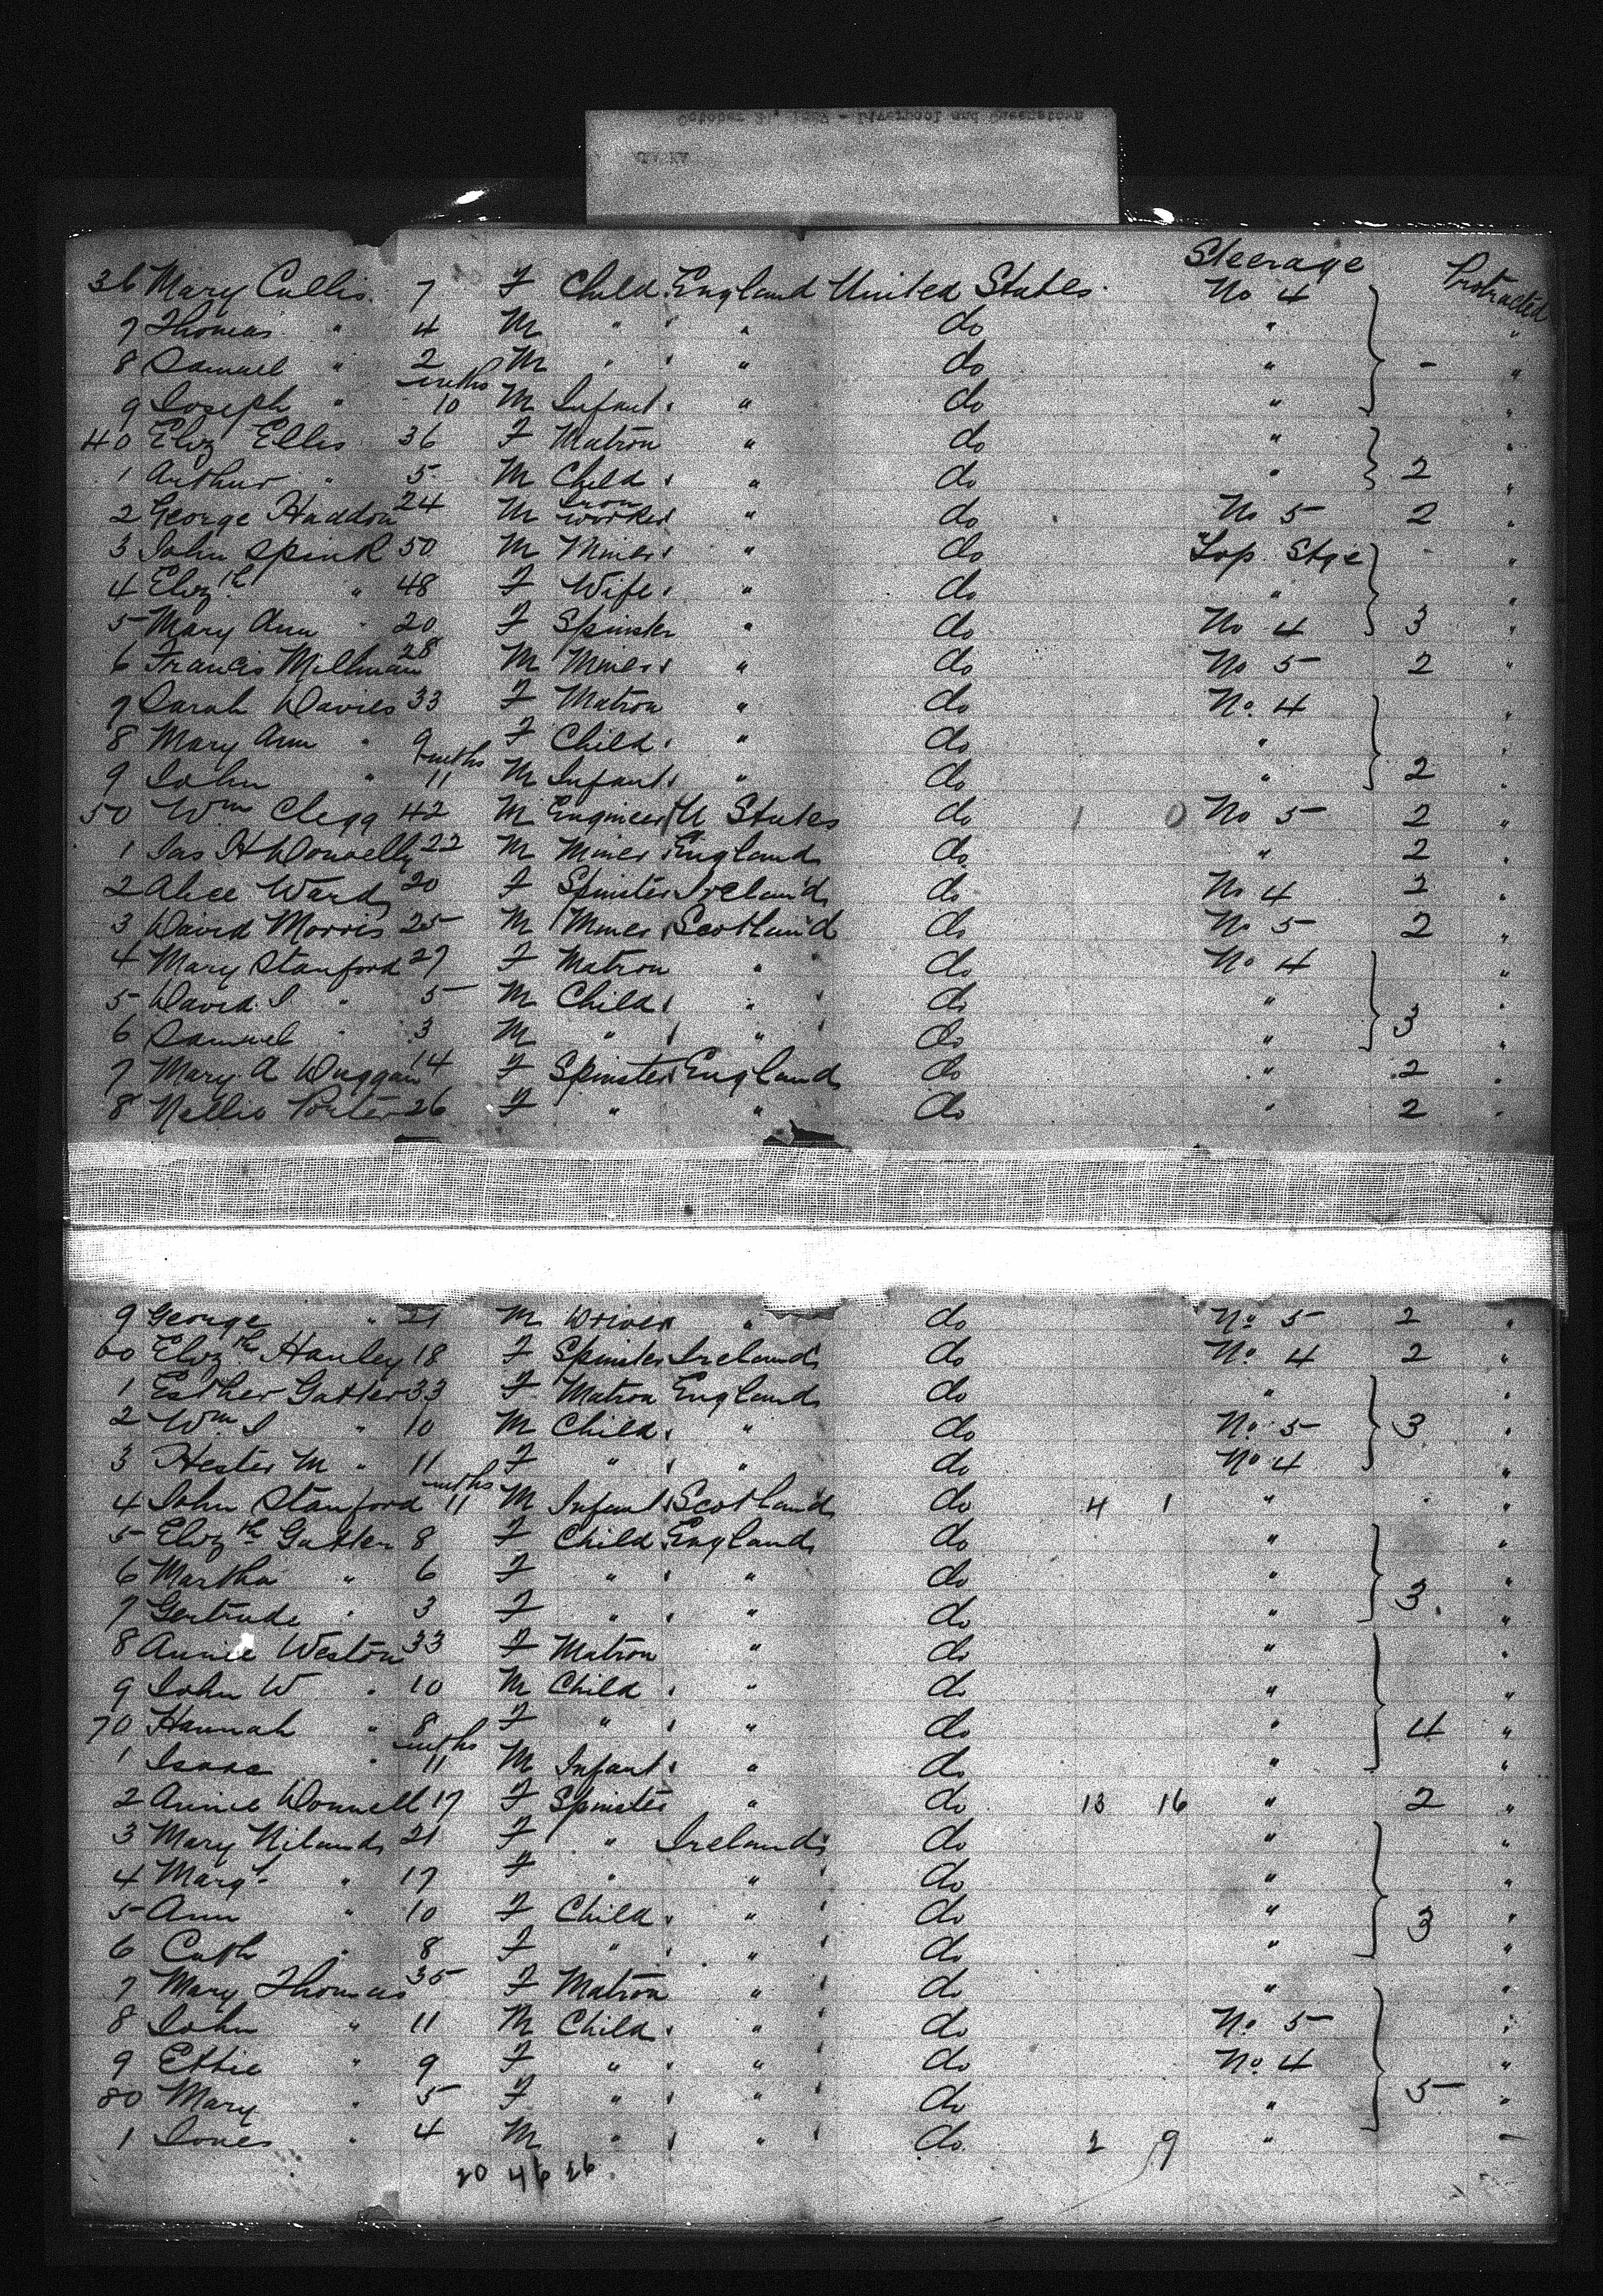 October 21, 1887 - Liverpool and Queenstown
ALASKA
Steerage Protracted
36 Mary Cullis 7 F Child England United States No 4
7 Thomas " 4 M " " do " "
8 Samuel " 2 M " " do " - "
9 Joseph " mths 10 M Infant " do " "
40 Eliz Ellis 36 F Matron " do " "
1 Arthur " 5 M Child " do " 2 "
2 George Haddon 24 M Iron worker " do No 5 2 "
3 John Spink 50 M Miner " do Top Stge "
4 Elizth " 48 F Wife " do " "
5 Mary Ann " 20 F Spinster " do No 4 3 "
6 Francis Millman 28 M Miner " do No 5 2 "
7 Sarah Davies 33 F Matron " do No. 4 "
8 Mary Ann " 9 F Child " do " "
9 John " mths 11 M Infant " do " 2 "
50 Wm Clegg 42 M Engineer U States do 1 0 No 5 2 "
1 Jas H Donnelly 22 M Miner England do " 2 "
2 Alice Ward 20 F Spinster Ireland do No 4 2 "
3 David Morris 25 M Miner Scotland do No 5 2 "
4 Mary Stanford 27 F Matron " do No 4 "
5 David J " 5 M Child " do " "
6 Samuel " 3 M " " do " 3 "
7 Mary A Duggan 14 F Spinster England do " 2 "
8 Nellie Porter 26 F " " do " 2 "
9 George " 21 M Driver " do No 5 2 "
60 Elizth Hanley 18 F Spinster Ireland do No 4 2 "
1 Esther Gatter 33 F Matron England do " "
2 Wm J " 10 M Child " do No 5 3 "
3 Hester M " 11 F " " do No 4 "
4 John Stanford mths 11 M Infant Scotland do 4 1 " "
5 Elizth Gatter 8 F Child England do " "
6 Martha " 6 F " " do " "
7 Gertrude " 3 F " " do " 3 "
8 Annie Weston 33 F Matron " do " "
9 John W " 10 M Child " do " "
70 Hannah " 8 F " " do " 4 "
1 Isaac " mths 11 M Infant " do " "
2 Annie Donnell 17 F Spinster " do 13 16 " 2 "
3 Mary Niland 21 F " Ireland do " "
4 Margt " 17 F " " do " "
5 Ann " 10 F Child " do " 3 "
6 Cath " 8 F " " do " "
7 Mary Thomas 35 F Matron " do " "
8 John " 11 M Child " do No 5 "
9 Ettie " 9 F " " do No 4 "
80 Mary " 5 F " " do " 5 "
1 Jones " 4 M " " do 2 9 " "
20 46 26